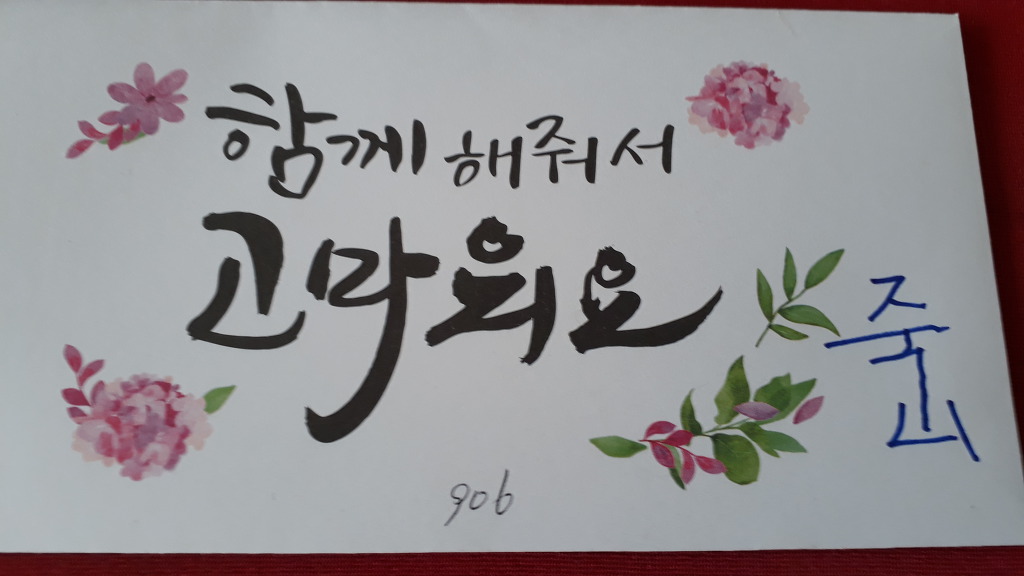 함께 해줘서
고마워요
906